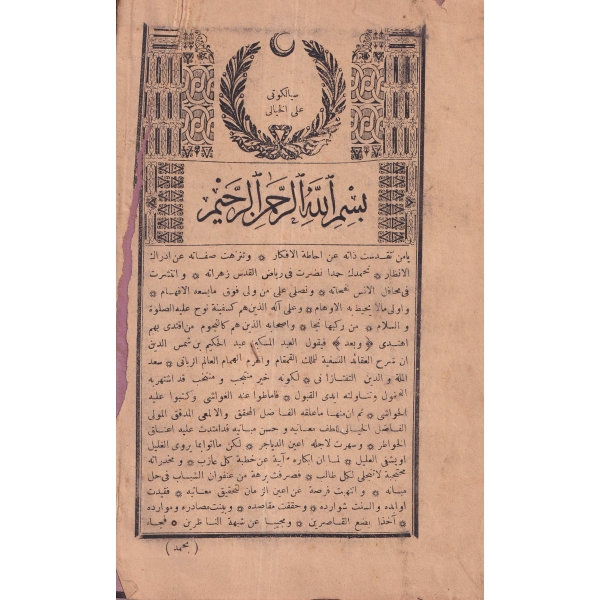 سيالكوتى
على الخيالى
بسم الله الرحمن الرحيم
يامن تقدست ذاته عن احاطة الافكار * وتنزهت صفاته عن ادراك
الانظار * نحمدك حمدا نضرت فى رياض القدس زهراته * وانتشرت
فى محافل الانس نفحاته * ونصلى على من ولى فوق مايسعه الافهام *
واولى مالا يحيط به الاوهام * وعلى آله الذين هم كسفينة نوح عليه الصلوة
و السلام * من ركبها نجا * واصحابه الذين هم كالنجوم من اقتدى بهم
اهتدى ﴿ وبعد ﴾ فيقول العبد المسكين عبد الحكيم بن شمس الدين
ان شرح العقائد النسفية لملك القمقام والقرم الهمام العالم الربانى * سعد
الملة و الدين التفتازانى * لكونه خير منتخب و منتخب قد اشتهر به
القبول * فاماطوا عنه الغواشى * وكتبوا عليه
الحواشى * ثم ان منها ماعلقه الفاضل المحقق والالمعى المدقق المولى
الفاضل الخيالى لطف معانيه و حسن مبانيه قد امتدت عليه اعناق
الخواطر * وسهرت لاجله اعين الدياجر * لكن ما اتوا بما يروى الغليل
اويشفى العليل * لما ان ابكاره آبية عن خطبة كل عازب * ومخدراته
محتجبة لاتجلى لكل طالب * فصرفت برهة من عنفوان الشباب فى حل
مبانيه * و انتهبت فرصة عن اعين الزمان لتحقيق معانيه * فقيدت
اوابده و آنست شوارده * وحققت مقاصده * وبينت مصادره وموارده
* آخذا بضبع القاصرين * ومجيبا عن شبهة الناظرين * فجاء
( بحمد )